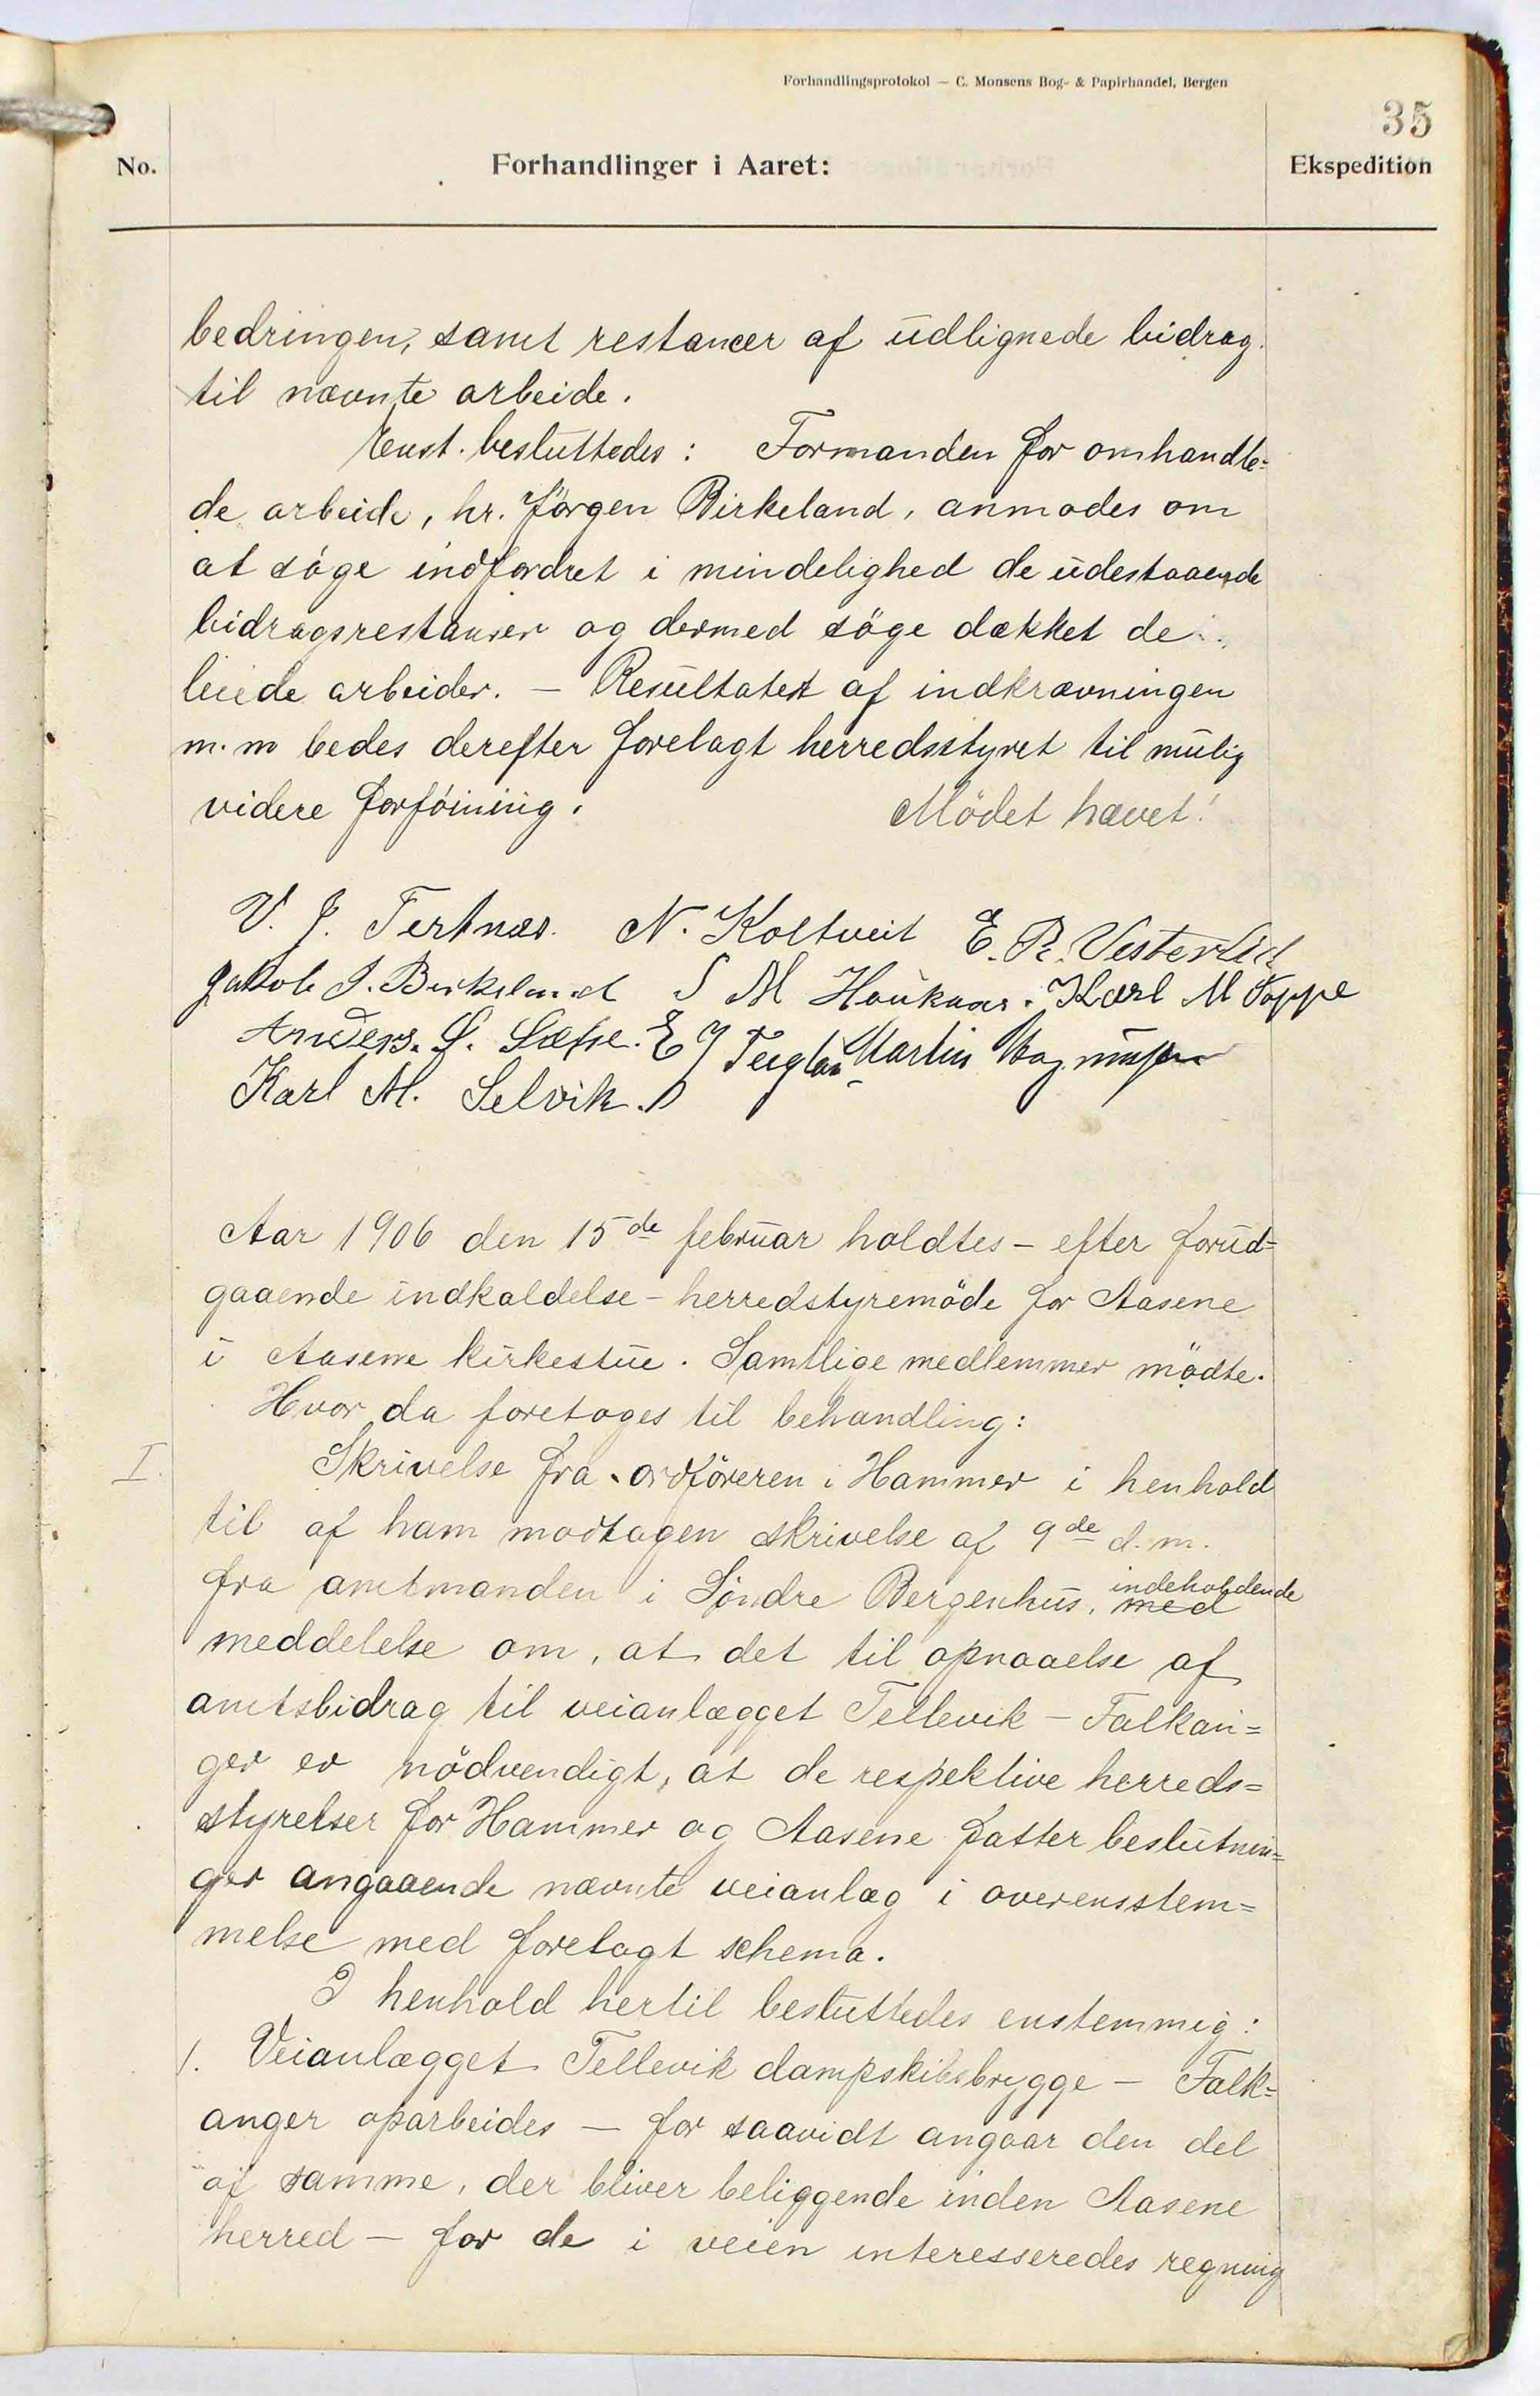 Forhandlingsprotokol — C. Monsens Bog- & Papirhandel, Bergen
35
No.
Forhandlinger i Aaret:
Ekspedition
bedringen, samt restancer af udlignede bidrag
til nævnte arbeide.
Enst. besluttedes: Formanden for omhandle-
de arbeide, hr. Jörgen Birkeland, anmodes om
at söge indfordret i mindelighed de udestaaende
bidragsrestanser og dermed söge dækket de
leiede arbeider. — Resultatet af indkrævningen
m.m bedes derefter forelagt herredsstyret til mulig
videre forföining. Mödet hævet!
V. J. Tertnæs. N. Koltveit E. R. Vesterlid
Jakob J. Birkeland S M Haukaas. Karl M Toppe
Anders. S. Sæhle. E J Teiglan Martin Magnusen
Karl M. Selvik.
Aar 1906 den 15de februar holdtes — efter forud-
gaaende indkaldelse — herredstyremöde for Aasene
i Aasene kirkestue. Samtlige medlemmer mödte.
Hvor da foretoges til behandling:
I. Skrivelse fra ordföreren i Hammer i henhold
til af ham modtagen skrivelse af 9de d.m.
fra amtmanden i Söndre Bergenhus, med indeholdende
meddelelse om, at det til opnaaelse af
amtsbidrag til veianlægget Tellevik — Falkan-
ger er nödvendigt, at de respektive herreds-
styrelser for Hammer og Aasene fatter beslutnin-
ger angaaende nævnte veianlæg i overensstem-
melse med forelagt schema.
I henhold hertil besluttedes enstemmig:
1. Veianlægget Tellevik dampskibsbrygge — Falk-
anger oparbeides — for saavidt angaar den del
af samme, der bliver beliggende inden Aasene
herred — for de i veien interesseredes regning